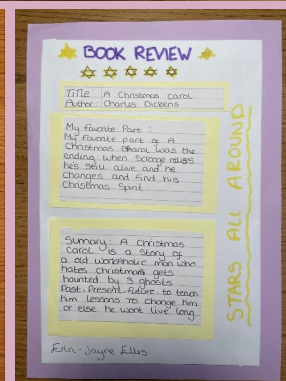 BOOK REVIEW
Title : A Christmas carol
Author : Charles Dickens
My Favorite Part :
My Favorate part of A
Christmas Carol was the
ending when Scrooge
he's still alive and he
changes and find his
Christmas Spirit.
Sumary: A Christmas
Carol is a Story of
a old workaholic man who
hates christmas gets
haunted by 3 ghosts
Past, Present, Future, to teach
him lessons To change him
or else he wont live long
STARS ALL AROUND
Erin-Jayne Ellis